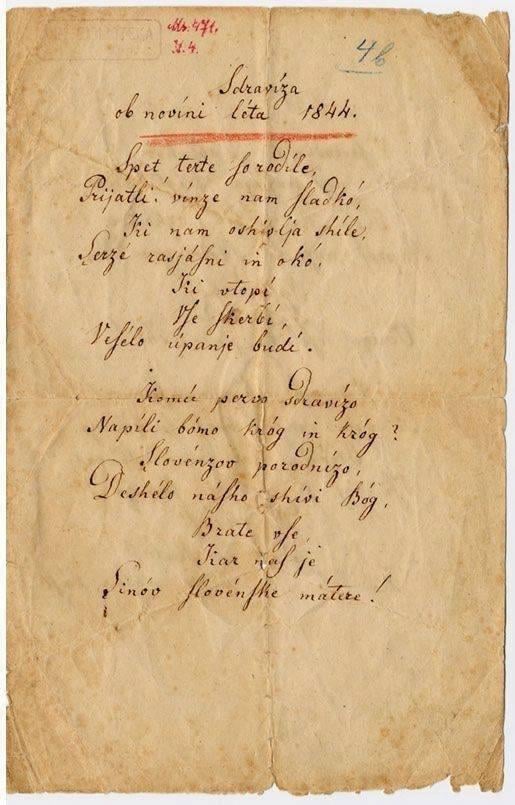 Ms. 471.
N. 4.
4b
Sdravíza
ob novíni léta 1844.
Spet terte so rodíle,
Prijatli! vínze nam sladkó,
Ki nam oshivlja shíle,
Serzé rasjásni in okó,
Ki vtopí
Vse skerbí,
Vesélo úpanje budí.
Komú pervo sdravízo
Napíli bómo króg in króg?
Slovénzov porodnízo,
Deshélo násho shívi Bóg,
Brate vse,
Kar nas je
Sinóv slovénske mátere!